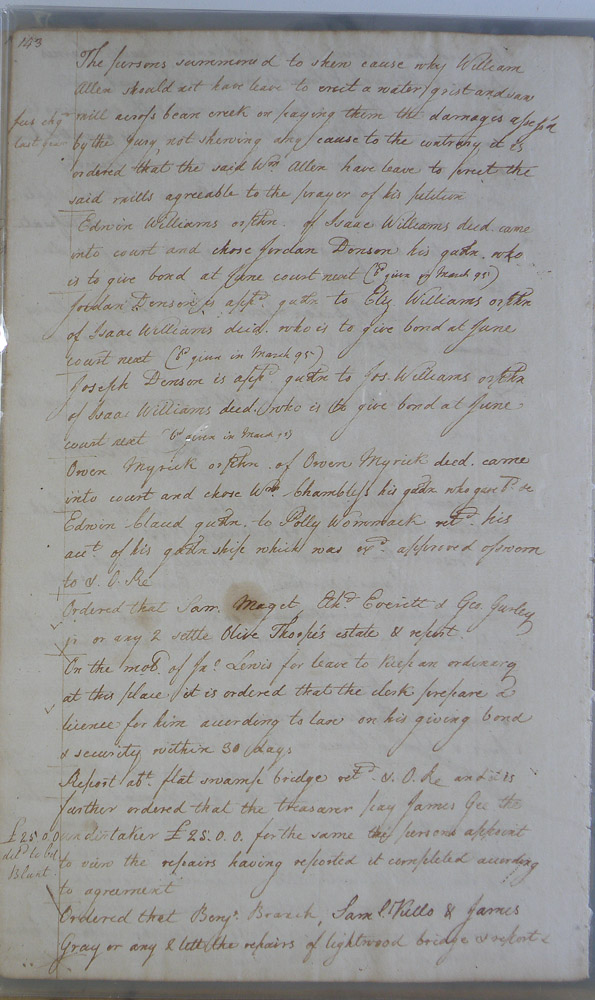 143
The persons summoned to shew cause why William
Allen should not have leave to erect a water grist and saw
mill across bean creek on paying them the damages assess'd
fees chg
last year
by the jury, not shewing any cause to the contrary it is
ordered that the said Wm Allen have leave to erect the
said mills agreeable to the prayer of his petition
Edwin Williams orphn. of Isaac Williams deed. came
into court and chose Jordan Denson his gudn. who
is to give bond at June court next (Bd given in March 95)
Jordan Denson is appd. gudn to Ely Williams orphn
of Isaac Williams deed. who is to give bond at June
court next (Bd given in March 95)
Joseph Denson is appd gudn to Jos. Williams orphn
of Isaac Williams deed. who is to give bond at June
court next (Bd given in March 95)
Owen Myrick orphn. of Owen Myrick deed. came
into court and chose Wm. Chambless his gudn who gave bd. &c
Edwin Claud gudn. to Polly Wommack retd. his
acct. of his gudn ship which was exd. approved of sworn
to & O. Re
Ordered that Sam. Maget, Ethd. Everett & Geo. Gurley
jr or any 2 settle Olive Thorpe's estate & report
On the mod. of Jas. Lewis for leave to keep an ordinary
at this place it is ordered that the clerk prepare a
licence for him according to law on his giving bond
& security within 30 days
Report abt. flat swamp bridge retd. & O. Re and it is
further ordered that the treasurer pay James Gee the
£25.0.0
deld to
Blunt
undertaker £25.0.0. for the same the persons appoint
to view the repairs having reported it completed according
to agreement
Ordered that Benj. Branch, Saml. Kello & James
Gray or any 2 lett the repairs of lightwood bridge & report